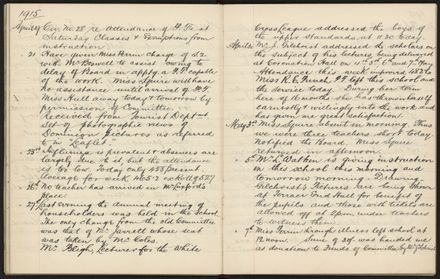 1915.
April 19 Circ. No. 28 re attendance of P.T.s at
Saturday Classes & Exemptions from
instruction.
21 Have given Miss Perrin charge of S.2
with Mr Bonwell to assist owing to
delay of Board in supplying a P.T. capable
of the work. Miss Squire will have
no assistance until arrival of P.T.
Miss Hull away today & tomorrow by
permission of Committee.
Received from Tourist Dept a
Set of photographic views of
Dominion pictures as referred
to in leaflet.
23rd is prevalent & absentees are
largely due to it, but the attendance
is too low. Today only 458 present
Average for week 465.2 on Roll 527
26th No teacher has arrived in Mr
place.
27th Last evening the annual meeting of
householders was held in the School.
The only change from the old Committee
was that of Mr Jarrell whose seat
was taken by Mr Coles.
Mr Bligh, lecturer for the White
Cross League addressed the boys of
the upper standards at 11.20 today.
April 30 Mr J. addressed the scholars on
the subject of his lectures being delivered
at Coronation Hall on 4th 5th 6th and 7th May.
Attendance this week improved 482.6
Miss R. L. P.T. left this school and
the service today. During her term
here of 12 months she has throughout
earnestly & willingly into the work and
has given me great satisfaction.
May 3rd Miss Squire absent in morning. Thus
we were three teachers short today
Notified the Board. Miss Squire
returned in afternoon.
5th Mr L. Watkin is giving instruction
in the school this morning and
tomorrow morning. Dr
Pictures are being shown
at Town Hall for benefit of
the pupils and those with tickets are
allowed off at 2pm under teachers
to witness them.
7th Miss Perrin through illness left school at
12 noon. Sum of was handed me
as donation to Funds of Committee by